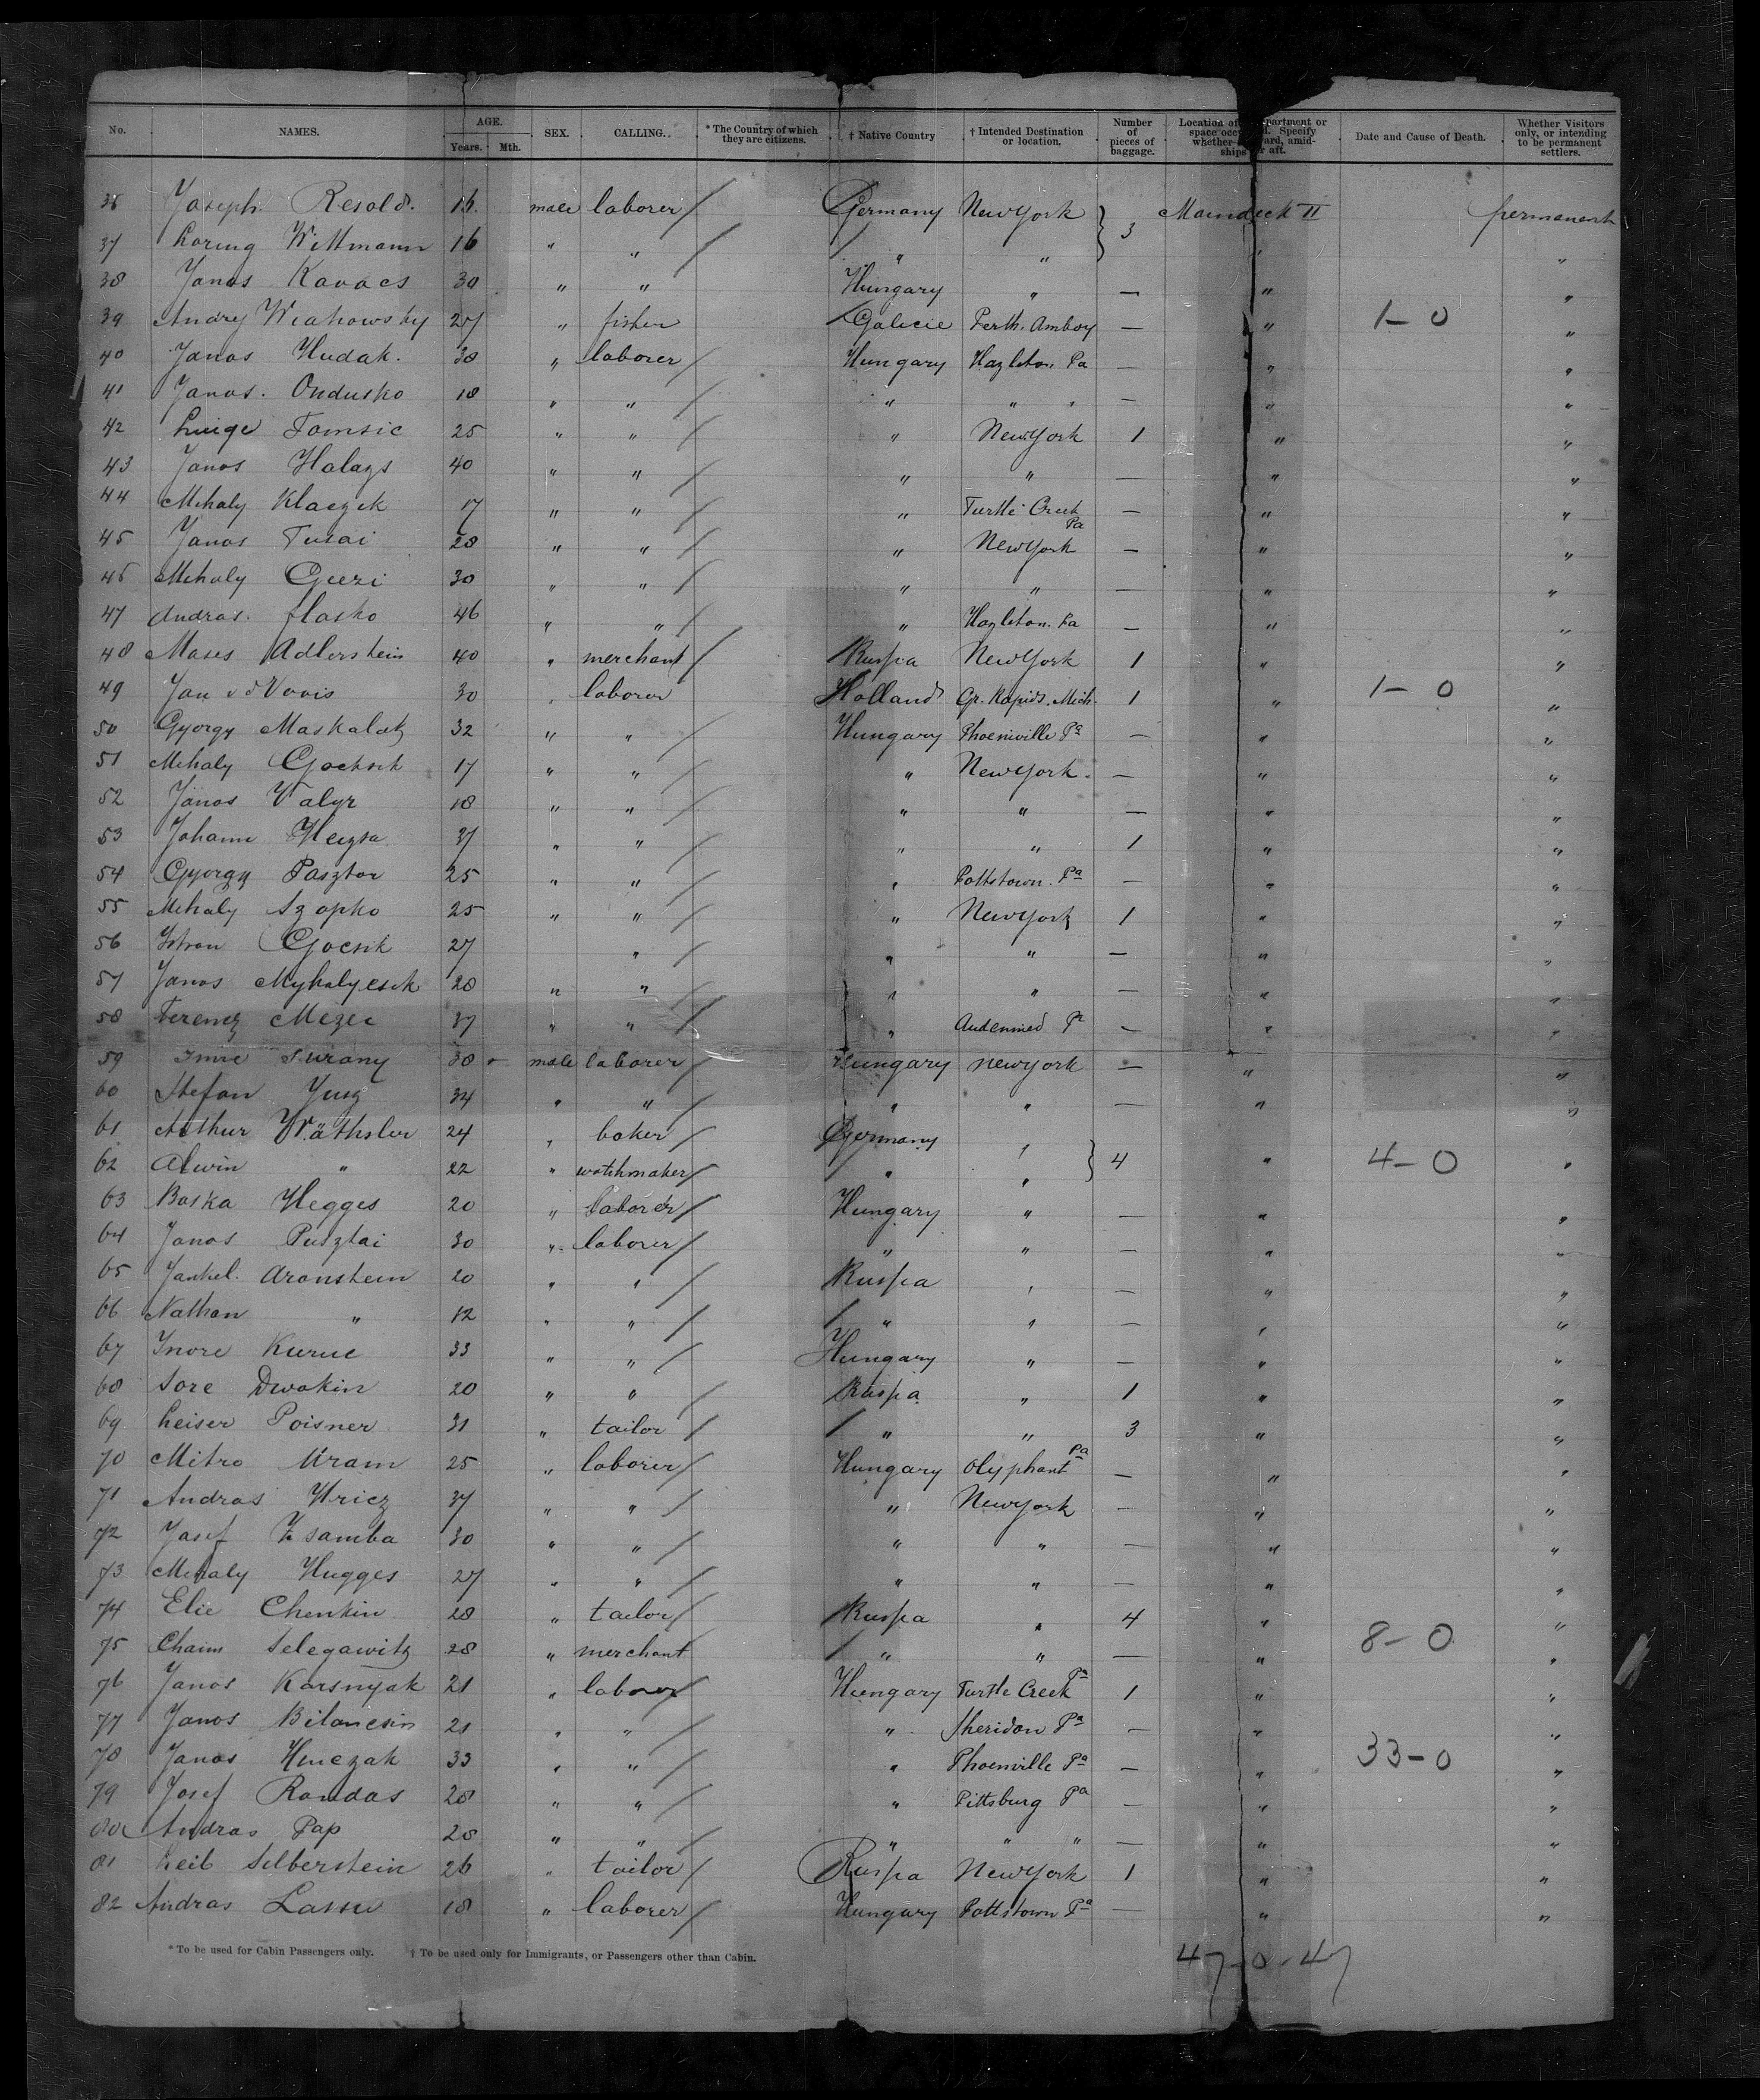 No. NAMES. AGE. Years. Mth. SEX. CALLING. * The Country of which they are citizens. † Native Country † Intended Destination or location. Number of pieces of baggage. Location of space occ partment or d. Specify whether ard, amidships r aft. Date and Cause of Death. Whether Visitors only, or intending to be permanent settlers.
36 Joseph Resold. 16 male laborer Germany New York 3 Maindeck II permanent
37 Wittmann 16 " " " " " "
38 Janos Kovacs 30 " " Hungary " — " "
39 Andry 27 " fisher Galicie Perth. Amboy — " 1-0 "
40 Janos Hudak. 38 " laborer Hungary Hazleton Pa — " "
41 Janos. Ondusko 18 " " " " " — " "
42 Luige Tomsic 25 " " " New York 1 " "
43 Janos Halazs 40 " " " " — " "
44 Mihaly Klaczek 17 " " " Turtle Creek Pa — " "
45 Janos Tusai 28 " " " New York — " "
46 Mihaly 30 " " " " — " "
47 Andras. Hasko 46 " " " Hazleton. Pa — " "
48 Moses Adlerstein 40 " merchant Russia New York 1 " "
49 Jan v d Voois 30 " laborer Holland Gr. Rapids. Mich. 1 " 1-0 "
50 Gyorgy Maskalatz 32 " " Hungary Phoenixville Pa — " "
51 Mihaly 17 " " " New York. — " "
52 Janos Valyr 18 " " " " — " "
53 Johann Heizsa 37 " " " " 1 " "
54 Gyorgy Pasztor 25 " " " Pottstown. Pa — " "
55 Mihaly Szopko 25 " " " New York 1 " "
56 Istvan Gocsik 27 " " " — " "
57 Janos Myhalycsik 28 " " " " — " "
58 Ferencz Mezei 37 " " " Audenried Pa — " "
59 Imre Surany 38 male laborer Hungary New york — "
60 Stefan Jung 34 " " " " — " "
61 Arthur Wäthsler 24 " baker Germany " 4 " 4-0 "
62 Alwin " 22 " watchmaker " "
63 Baska Hegges 20 " laborer Hungary " — " "
64 Janos Pusztai 30 " laborer " " — " "
65 Jankel. Aronstein 20 " " Russia " — " "
66 Nathan " 12 " " " " — " "
67 Kuruc 33 " " Hungary " — " "
68 Sore Dwokin 20 " " Russia " 1 " "
69 Leiser Poisner 31 " tailor " " 3 " "
70 Mitro Uram 25 " laborer Hungary Olyphant Pa — " "
71 Andras Hricz 37 " " " New York — " "
72 Josef Zsamba 30 " " " " — " "
73 Mihaly Hugges 27 " " " " — " "
74 Elie Chenkin 28 " tailor Russia " 4 " "
75 Chaim Selegawitz 28 " merchant " " — " 8-0 "
76 Janos Karsnyak 21 " laborer Hungary Turtle Creek Pa 1 " "
77 Janos Bilancsin 21 " " " Sheridan Pa — " "
78 Janos Hinczak 33 " " " Phoenville Pa — " 33-0 "
79 Josef Rondas 28 " " " Pittsburg Pa — " "
80 Andras Pap 28 " " " " " — " "
81 Leib Silberstein 26 " tailor Russia New York 1 " "
82 Andras Lassu 18 " laborer Hungary Pottstown Pa — " "
* To be used for Cabin Passengers only. † To be used only for Immigrants, or Passengers other than Cabin.
47-0-47